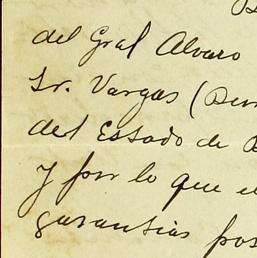 del Gral Alvaro
Sr. Vargas
del Estado de
y por lo que
garantias